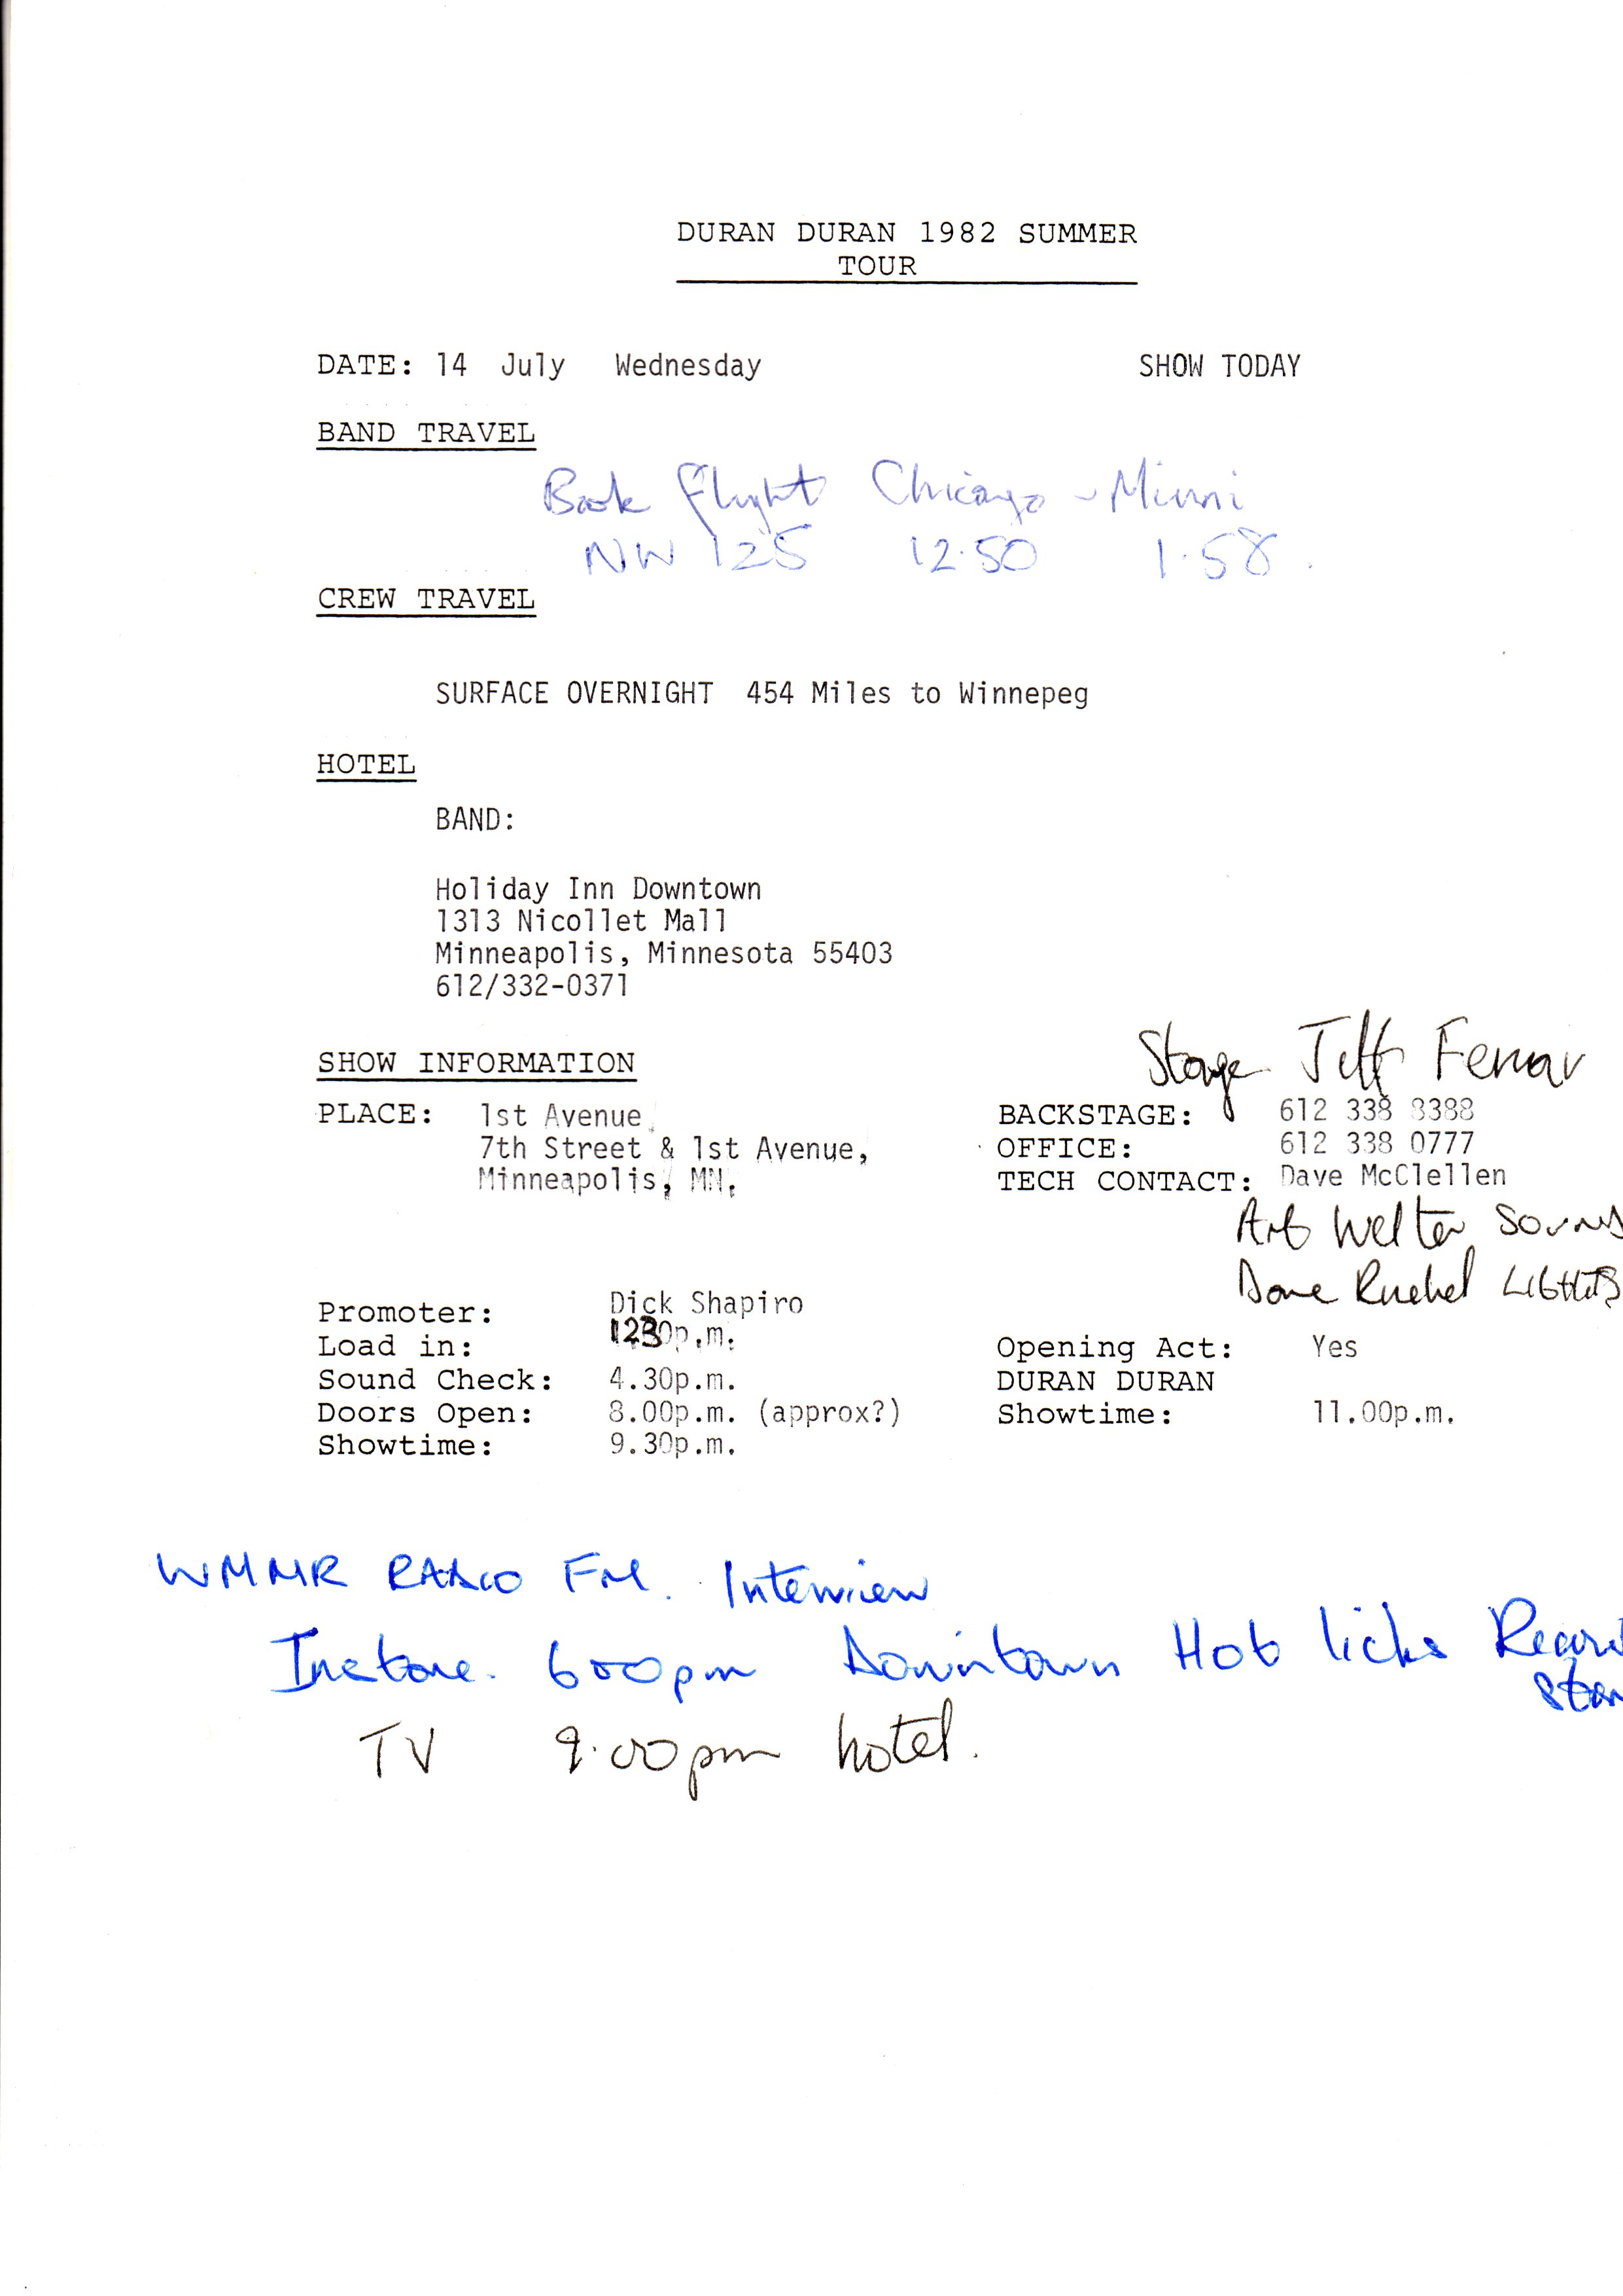 DURAN DURAN 1982 SUMMER
TOUR
DATE: 14 July Wednesday SHOW TODAY
BAND TRAVEL
Book flight Chicago - Minni
NW 125 12.50 1.58.
CREW TRAVEL
SURFACE OVERNIGHT 454 Miles to Winnepeg
HOTEL
BAND:
Holiday Inn Downtown
1313 Nicollet Mall
Minneapolis, Minnesota 55403
612/332-0371
Stage Jeff Ferrar
SHOW INFORMATION
PLACE: 1st Avenue BACKSTAGE: 612 338 8388
7th Street & 1st Avenue, OFFICE: 612 338 0777
Minneapolis, MN. TECH CONTACT: Dave McClellen
Art Welter
Dave LIGHTS
Promoter: Dick Shapiro
Load in: 1230p.m. Opening Act: Yes
Sound Check: 4.30p.m. DURAN DURAN
Doors Open: 8.00p.m. (approx?) Showtime: 11.00p.m.
Showtime: 9.30p.m.
WMMR RADIO FM. Interview
Instore. 600pm Downtown Hot licks Record
TV 9.00pm hotel.